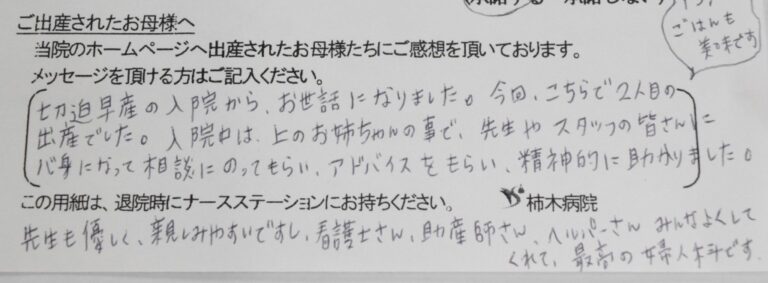 承諾する・承諾しない
ごはんも
美味です
ご出産されたお母様へ
当院のホームページへ出産されたお母様たちにご感想を頂いております。
メッセージを頂ける方はご記入ください。
切迫早産の入院から、お世話になりました。今回、こちらで2人目の
出産でした。入院中は、上のお姉ちゃんの事で、先生やスタッフの皆さんに
心身になって相談にのってもらい、アドバイスをもらい、精神的に助かりました。
この用紙は、退院時にナースステーションにお持ちください。 柿木病院
先生も優しく、親しみやすいですし、看護士さん、助産師さん、ヘルパーさん みんなよくして
くれて、最高の婦人科です.